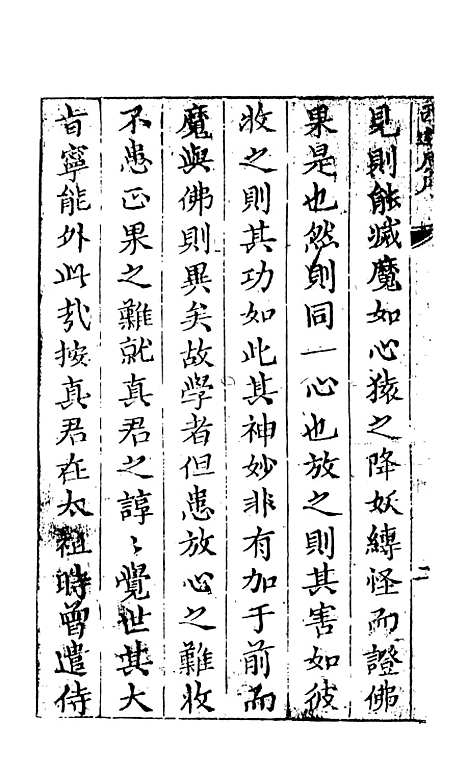 見則能滅魔如心猿之降妖縛怪而證佛
果是也然則同一心也放之則其害如彼
收之則其功如此其神妙非有加于前而
魔與佛則異矣故學者但患放心之難收
不患正果之難就真君之諄〻覺世其大
旨寧能外此㢤按真君在太祖時曾遣侍